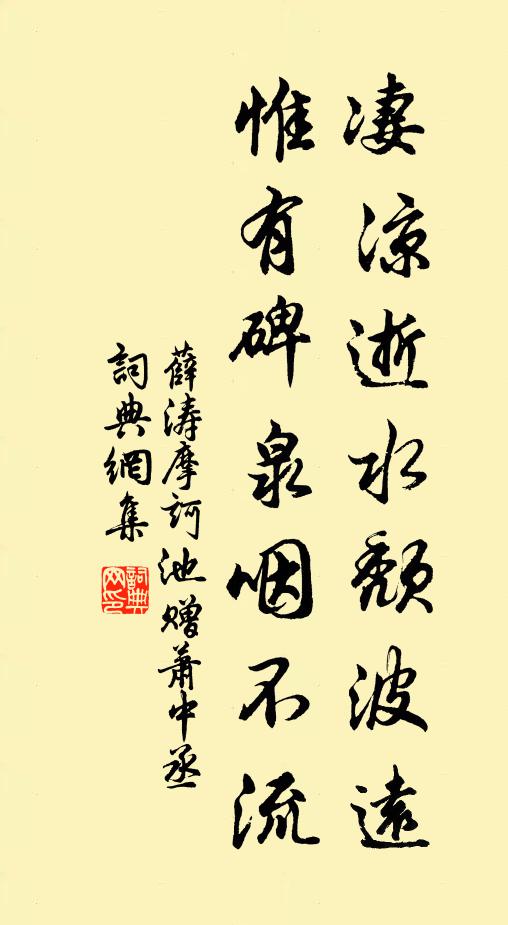 淒涼逝水頹波遠
惟有碑泉咽不流
薛濤摩訶池贈蕭中丞
詞典網集
詞典網印